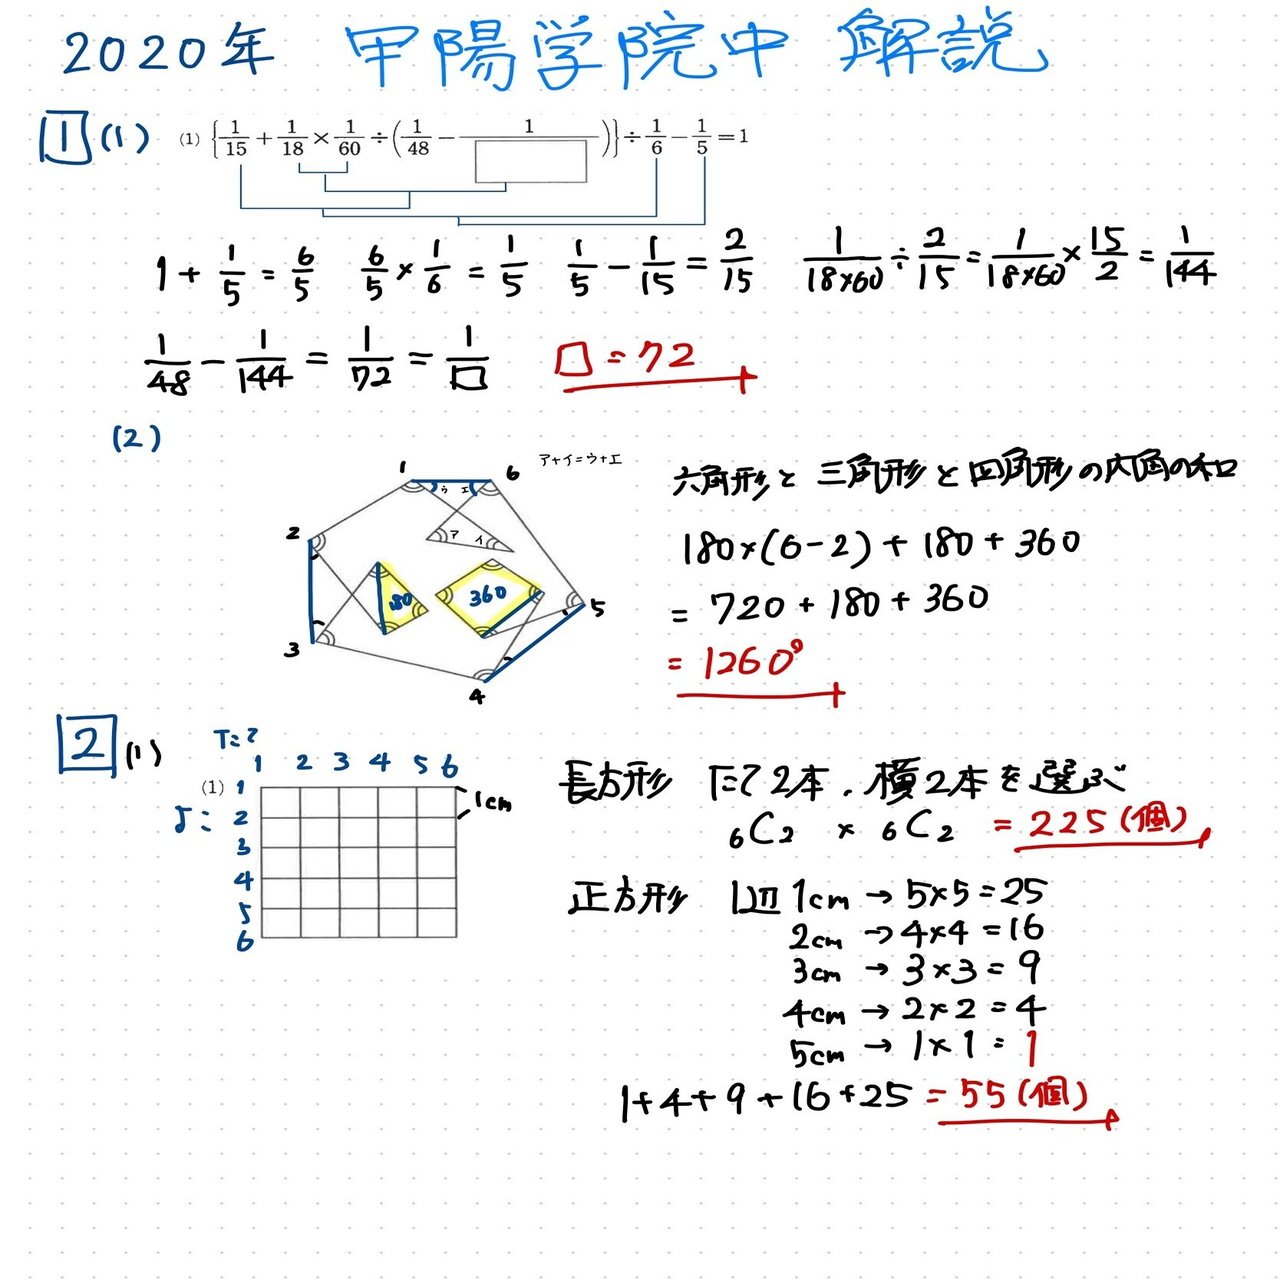 2020年 甲陽学院中 解説
1 (1) (1) {1/15 + 1/18 × 1/60 ÷ (1/48 − 1/□)} ÷ 1/6 − 1/5 = 1
1 + 1/5 = 6/5 6/5 × 1/6 = 1/5 1/5 − 1/15 = 2/15 1/18×60 ÷ 2/15 = 1/18×60 × 15/2 = 1/144
1/48 − 1/144 = 1/72 = 1/□ □ = 72
(2)
ア+イ=ウ+エ
1 6
ウ エ
ア イ
2
180 360
5
3
4
六角形と三角形と四角形の内角の和
180×(6−2) + 180 + 360
= 720 + 180 + 360
= 1260°
2 (1)
たて
1 2 3 4 5 6
(1) 1
1cm
2
3
4
5
6
長方形 たて2本、横2本を選ぶ
₆C₂ × ₆C₂ = 225(個)
正方形 1辺 1cm → 5×5=25
2cm → 4×4=16
3cm → 3×3=9
4cm → 2×2=4
5cm → 1×1=1
1+4+9+16+25 = 55(個)